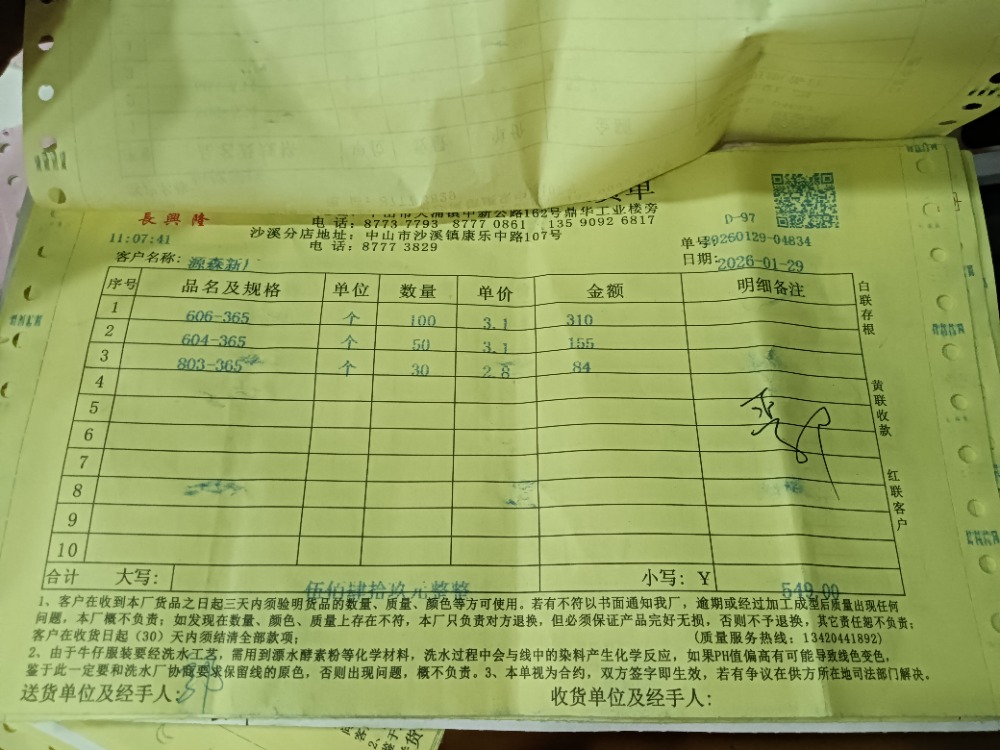 货单
長興隆
电话：8773 7793 8777 0861 135 9092 6817
沙溪分店地址：中山市沙溪镇康乐中路107号
电话：8777 3829
D-97
11:07:41
单号：20260129-04834
客户名称：源森新厂
日期：2026-01-29
序号 品名及规格 单位 数量 单价 金额 明细备注
1 606-365 个 100 3.1 310
2 604-365 个 50 3.1 155
3 803-365 个 30 2.8 84
4
5
6
7
8
9
10
白联存根
黄联收款
红联客户
合计 大写： 伍佰肆拾玖元整整 小写：￥ 549.00
1、客户在收到本厂货品之日起三天内须验明货品的数量、质量、颜色等方可使用。若有不符以书面通知我厂，逾期或经过加工成型后质量出现任何
问题，本厂概不负责；如发现在数量、颜色、质量上存在不符，本厂只负责对方退换，但必须保证产品完好无损，否则不予退换，其它责任恕不负责；
客户在收货日起（30）天内须结清全部款项；
（质量服务热线：13420441892）
2、由于牛仔服装要经洗水工艺，需用到漂水酵素粉等化学材料，洗水过程中会与线中的染料产生化学反应，如果PH值偏高有可能导致线色变色，
鉴于此一定要和洗水厂协商要求保留线的原色，否则出现问题，概不负责。3、本单视为合约，双方签字即生效，若有争议在供方所在地司法部门解决。
送货单位及经手人：
收货单位及经手人：